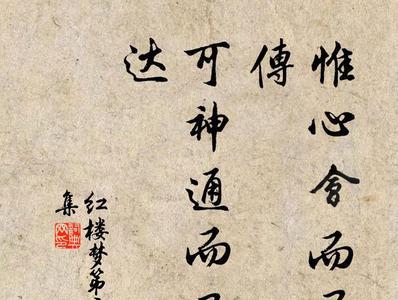 惟心會而
傳
可神通而
达
红楼梦第
集